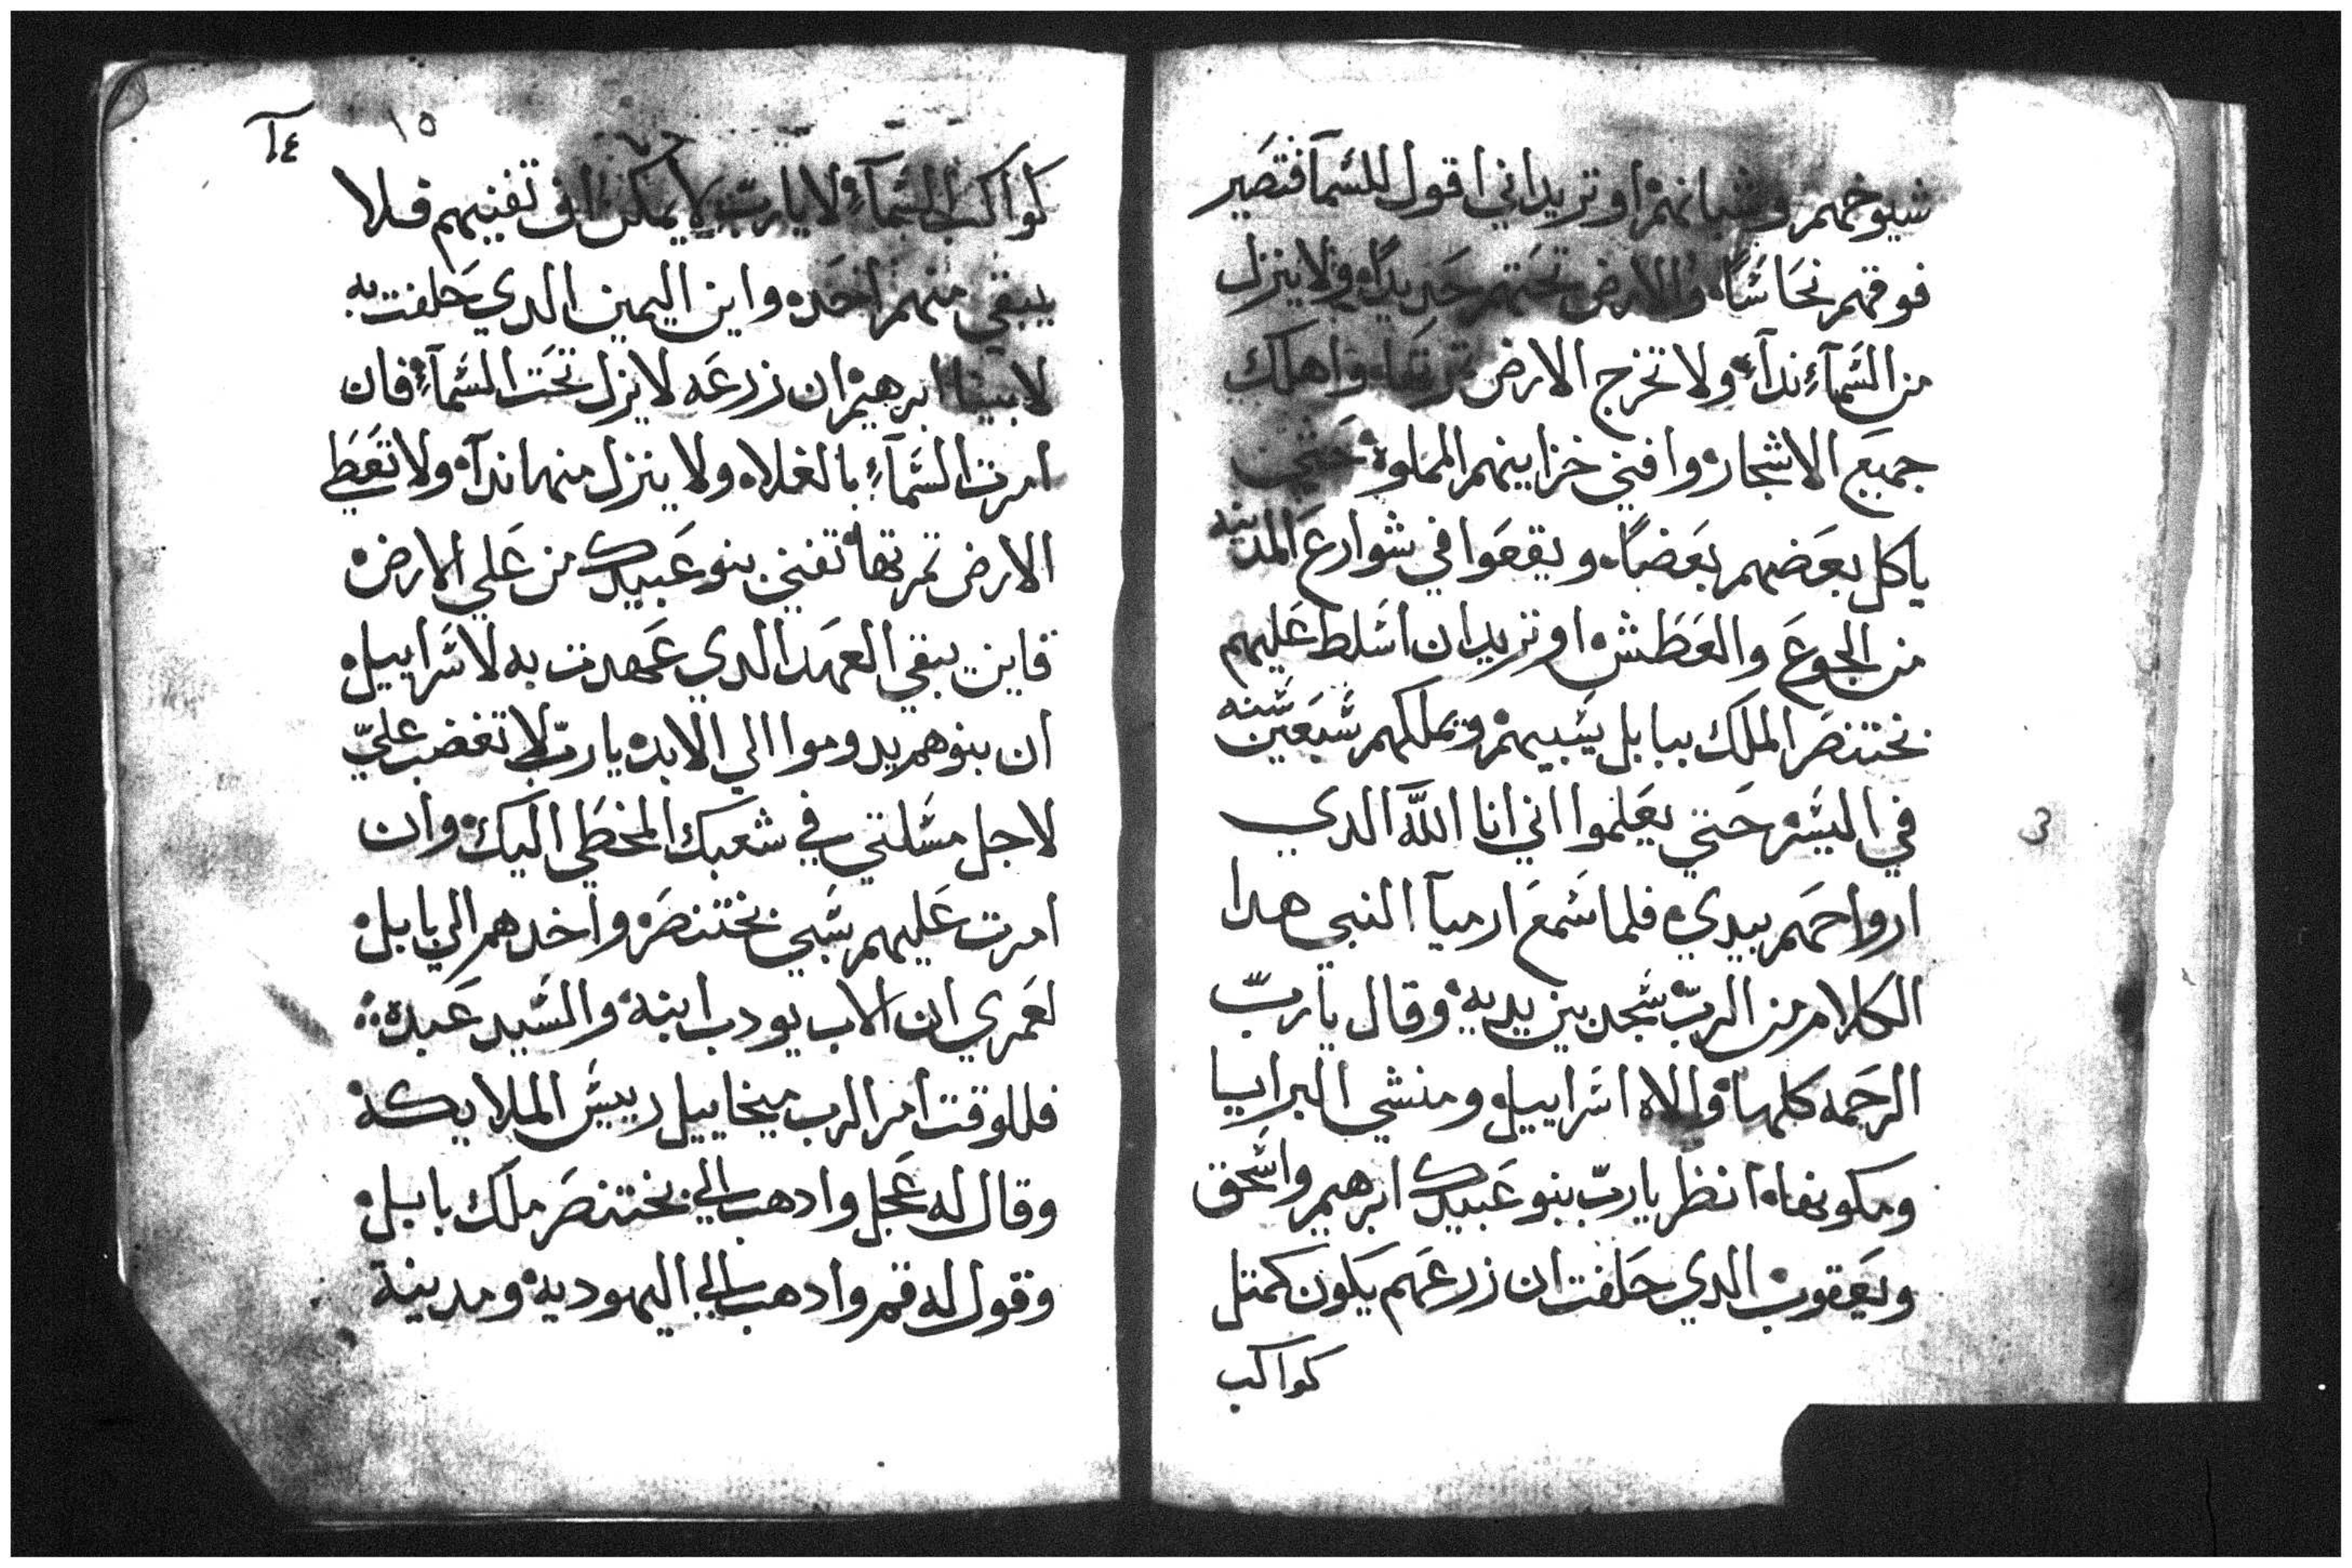 شيوخهم وشبانهم اوتريد اني اقول للسما فتصير
فوقهم نحاسًا والارض تحتهم حديدًا ولا ينزل
من السمآءِ ندآء ولا تخرج الارض تمرتها واهلك
جميع الاشجار وافني خزاينهم المملوة حتي
ياكل بعضهم بعضًا ويقعوا في شوارع المدينه
من الجوع والعطش اوتريد ان اسلط عليهم
بختنصر الملك ببابل يسبيهم ويملكهم سبعين سنه
في اليسر حتي يعلموا اني انا اللّه الدي
ارواحهم بيدي فلما سمع ارميآ النبي هدا
الكلام من الربّ سجد بين يديه وقال ياربّ
الرحمه كلها والاه اسراييل ومنشي البرايا
ومكونها انظر ياربّ بنو عبيدك ابرهيم واسحق
ويعقوب الدي حلفت ان زرعهم يكون كمتل
كواكب
١٥
١٤
كواكب السمآءِ لا ياربّ لا يمكن ان تفنيهم فلا
يبقي منهم احد واين اليمين الدي حلفت به
لابينا ابرهيم ان زرعه لايزل تحت السمآءِ فان
امرت السمآءِ بالغلاه ولا ينزل منها ندآ ولا تعطي
الارض تمرتها تفني بنو عبيدك من علي الارض
فاين يبقي العهد الدي عهدت به لاسراييل
ان بنوهم يدوموا الي الابد ياربّ لا تغضب عليّ
لاجل مسلتي في شعبك المخطي اليك وان
امرت عليهم سبي بختنصر واخدهم الي بابل
لعمري ان الاب يودب ابنه والسيد عبده
فللوقت امر الرب ميخاييل رييس الملايكة
وقال له عجل وادهب الي بختنصر ملك بابل
وقول له قم وادهب الي اليهودية ومدينة